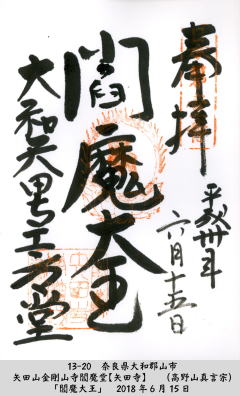 奉拝
平成卅年
六月十五日
閻魔大王
大和矢田山
堂
13-20 奈良県大和郡山市
矢田山金剛山寺閻魔堂【矢田寺】 (高野山真言宗)
「閻魔大王」 2018年6月15日